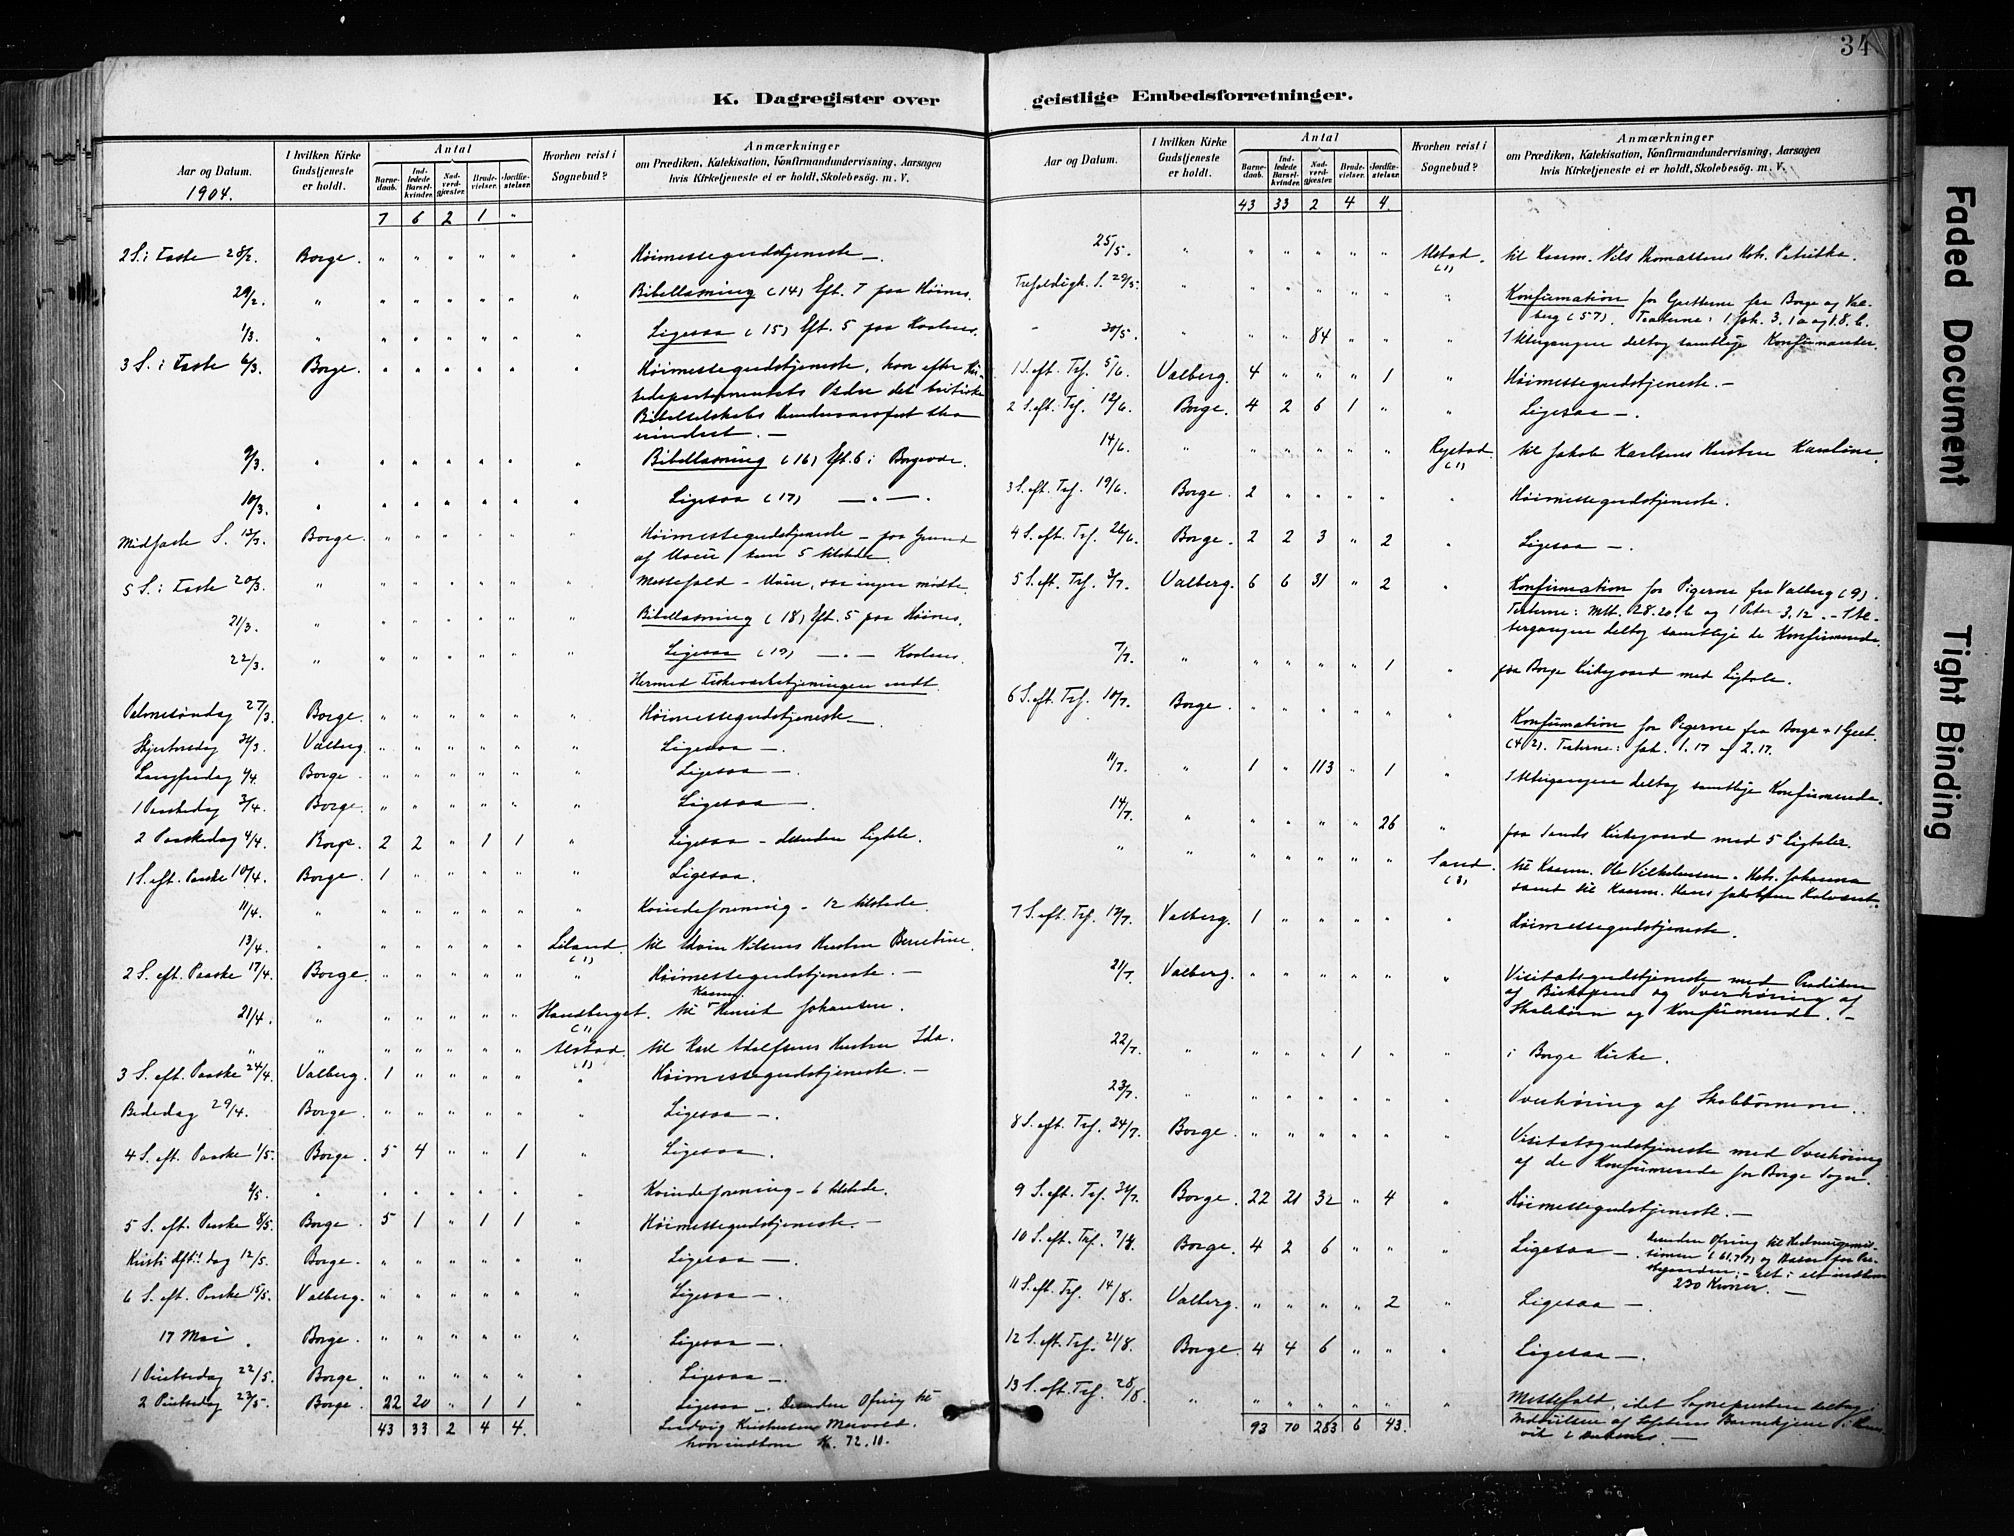 34
K. Dagregister over geistlige Embedsforretninger.
Aar og Datum.
1904.
I hvilken Kirke Gudstjeneste er holdt.
Antal
Barnedaab.
Indledede Barselkvinder.
Nadverdgjæster.
Brudevielser.
Jordfæstelser.
Hvorhen reist i Sognebud?
Anmærkninger
om Prædiken, Katekisation, Konfirmandundervisning, Aarsagen
hvis Kirketjeneste ei er holdt, Skolebesøg. m. V.
7 6 2 1 "
2 S. i Faste 28/2. Borge. " " " " " " Høimessegudstjeneste —.
29/2. " " " " " " " Bibellæsning (14) Eft. 7 paa Høines.
1/3. " " " " " " " Ligesaa (15) Eft. 5 paa
3 S. i Faste 6/3. Borge. " " " " " " Høimessegudstjeneste, hvor efter
det britiske
Bibelselskabs
mindest. —
9/3. " " " " " " " Bibellæsning (16) Eft. 6 i
10/3. " " " " " " " Ligesaa (17) — " —.
Midfaste S. 13/3. Borge. " " " " " " Høimessegudstjeneste – paa Grund
af Uveir kun 5 tilstede.
5 S. i Faste 20/3. " " " " " " " Messefald – Uveir, saa ingen mødte.
21/3. " " " " " " " Bibellæsning (18) Eft. 5 paa Høines.
22/3. " " " " " " " Ligesaa (19) — " —
Hermed endt.
Palmesøndag 27/3. Borge. " " " " " " Høimessegudstjeneste —.
Skjærtorsdag 31/3. Valberg. " " " " " " Ligesaa —.
Langfredag 1/4. Borge. " " " " " " Ligesaa —.
1 Paaskedag 3/4. Borge. " " " " " " Ligesaa —.
2 Paaskedag 4/4. Borge. 2 2 " 1 1 " Ligesaa – desuden Ligtale.
1 S. eft. Paaske 10/4. Borge. 1 " " " " " Ligesaa.
11/4. " " " " " " " Kvindeforening – 12 tilstede.
13/4. " " " " " " Liland (1) til Nilsens Hustru
2 S. eft. Paaske 17/4. Borge. " " " " " " Høimessegudstjeneste. —
21/4. " " " " " " Handberget. (1) til Johansen.
" " " " " " " Ulstad (1) til Karl Adolfsens Hustru Ida.
3 S. eft. Paaske 24/4. Valberg. 1 " " " " " Høimessegudstjeneste. —
Bededag 29/4. Borge. " " " " " " Ligesaa —.
4 S. eft. Paaske 1/5. Borge. 5 4 " " 1 " Ligesaa.
2/5. " " " " " " " Kvindeforening – 6 tilstede.
5 S. eft. Paaske 8/5. Borge. 5 1 " 1 1 " Høimessegudstjeneste. —
Kristi Dag 12/5. Borge. " " " " " " Ligesaa —.
6 S. eft. Paaske 15/5. Valberg. " " " " " " Ligesaa —.
17 Mai. Borge. " " " " " " Ligesaa —.
1 Pintsedag 22/5. Borge. " " " " " " Ligesaa —.
2 Pintsedag 23/5. Borge. 22 20 " 1 1 " Ligesaa —. Desuden Ofring til
Ludvig Kristensen
hvor indkom K. 72.11.
43 33 2 4 4.
Aar og Datum.
I hvilken Kirke Gudstjeneste er holdt.
Antal
Barnedaab.
Indledede Barselkvinder.
Nadverdgjæster.
Brudevielser.
Jordfæstelser.
Hvorhen reist i Sognebud?
Anmærkninger
om Prædiken, Katekisation, Konfirmandundervisning, Aarsagen
hvis Kirketjeneste ei er holdt, Skolebesøg. m. V.
43 33 2 4 4.
25/5. " " " " " " Ulstad. (1) til Kaarm. Nils Thomassens
Trefoldigh. S. 29/5. " " " " " " " Konfirmation for Gutterne fra Borge og Valberg
(57). Texterne: 1 Joh. 3. 1 a og 1.8. b.
30/5. " " " 84 " " " I Altergangen deltog samtlige Konfirmander.
1 S. eft. Tref. 5/6. Valberg. 4 " " " 1 " Høimessegudstjeneste. —
2 S. eft. Tref. 12/6. Borge. 4 2 6 1 " " Ligesaa —.
14/6. " " " " " " Rystad. (1) til Jakob Karlsens Hustru Karoline.
3 S. eft. Tref. 19/6. Borge. 2 " " " " " Høimessegudstjeneste.
4 S. eft. Tref. 26/6. Borge. 2 2 3 " 2 " Ligesaa —.
5 S. eft. Tref. 3/7. Valberg. 6 6 31 " 2 Konfirmation for Pigerne fra Valberg (9).
Texterne: Mtt. 28.20. b og 1 Peter 3. 12. – I Altergangen
deltog samtlige de Konfirmerede.
7/7. " " " " " 1 " paa Borge Kirkegaard med Ligtale.
6 S. eft. Tref. 10/7. Borge. " " " " " " Konfirmation for Pigerne fra Borge + 1 Gut.
(42). Texterne: Jak. 1. 17 og 2. 17.
11/7. " 1 " 113 " 1 " I Altergangen deltog samtlige Konfirmerede.
14/7. " " " " " 26 " paa Sands Kirkegaard med 5 Ligtaler.
" " " " " " " Sand (3) til Kaarm. Ole Vilhelmsen + Johanna
samt til Kaarm. Hans Jakobsen
7 S. eft. Tref. 17/7. Valberg. 1 " " " " " Høimessegudstjeneste.
21/7. Valberg. " " " " " " Visitatsgudstjeneste med Prædiken
af Biskopen og Overhøring af
Skolebørn og Konfirmerede. —
22/7. " " " " 1 " " i Borge Kirke.
23/7. " " Overhøring af Skolebørnene.
8 S. eft. Tref. 24/7. Borge. " " " " " " Visitatsgudstjeneste med Overhøring
af de Konfirmerede for Borge Sogn.
9 S. eft. Tref. 31/7. Borge. 22 21 32 " 4 " Høimessegudstjeneste. —
10 S. eft. Tref. 7/8. Borge. 4 2 6 " " " Ligesaa — desuden Ofring til Hedningemissionen
alt i alt indkom
230 Kroner. —
11 S. eft. Tref. 14/8. Valberg. " " " " 2 " Ligesaa —.
12 S. eft. Tref. 21/8. Borge. 4 4 6 " " " Ligesaa —.
13 S. eft. Tref. 28/8. " " " " " " " Messefald, idet Sognepresten deltog i
Indvielsen af
93 70 283 6 43.
Faded Document
Tight Binding